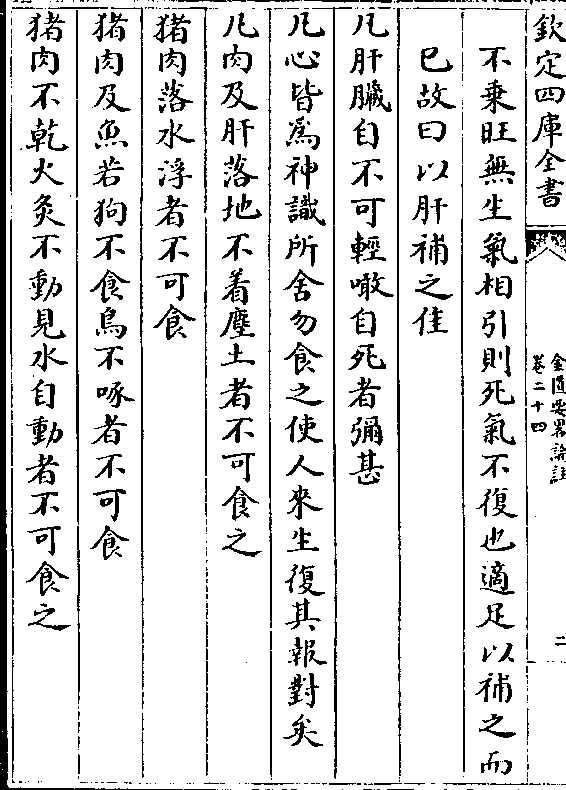 欽定四庫全書
金匱要畧論註
卷二十四
二
不乗旺無生氣相引則死氣不復也適足以補之而
已故曰以肝補之佳
凡肝臟自不可輕噉自死者彌甚
凡心皆為神識所舍勿食之使人來生復其報對矣
凡肉及肝落地不着塵土者不可食之
猪肉落水浮者不可食
猪肉及魚若狗不食鳥不啄者不可食
猪肉不乾火炙不動見水自動者不可食之